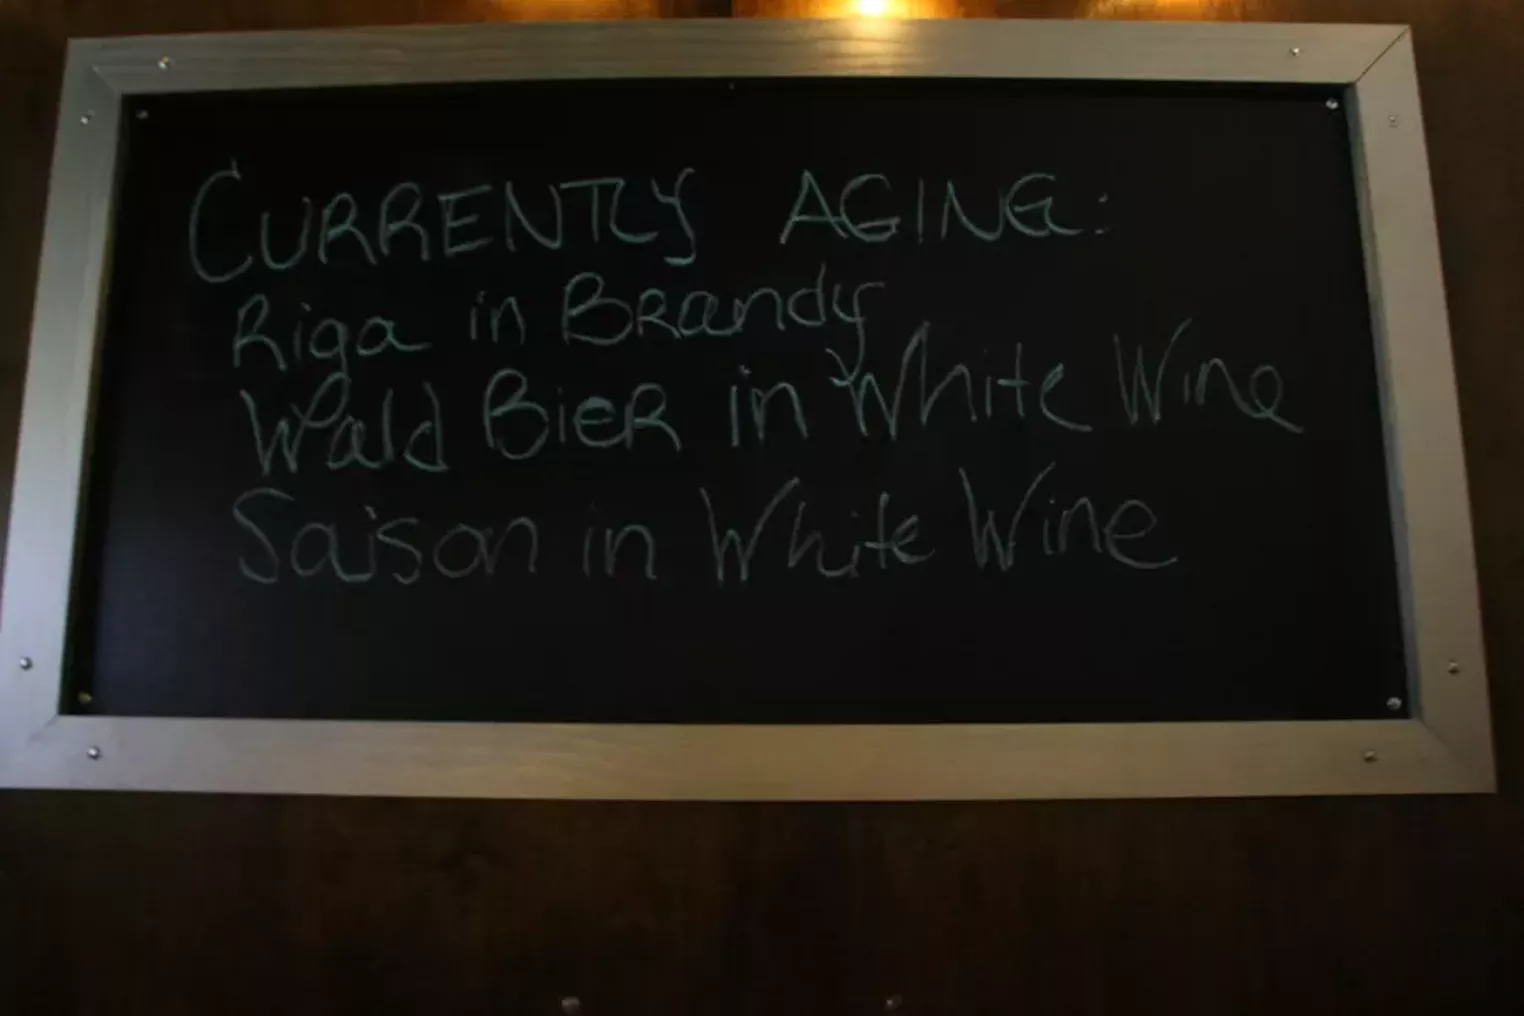 CURRENTLY AGING:
Riga in Brandy
Wald Bier in White Wine
Saison in White Wine